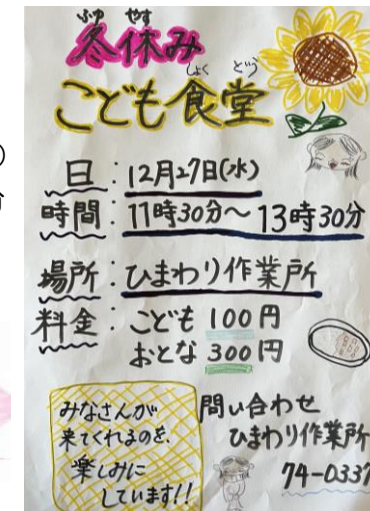 ふゆ やす
冬休み
しょく どう
こども食堂
日:12月27日(水)
時間:11時30分~13時30分
場所:ひまわり作業所
料金:こども 100円
おとな 300円
みなさんが
来てくれるのを、
楽しみに
しています!!
問い合わせ
ひまわり作業所
74-0337